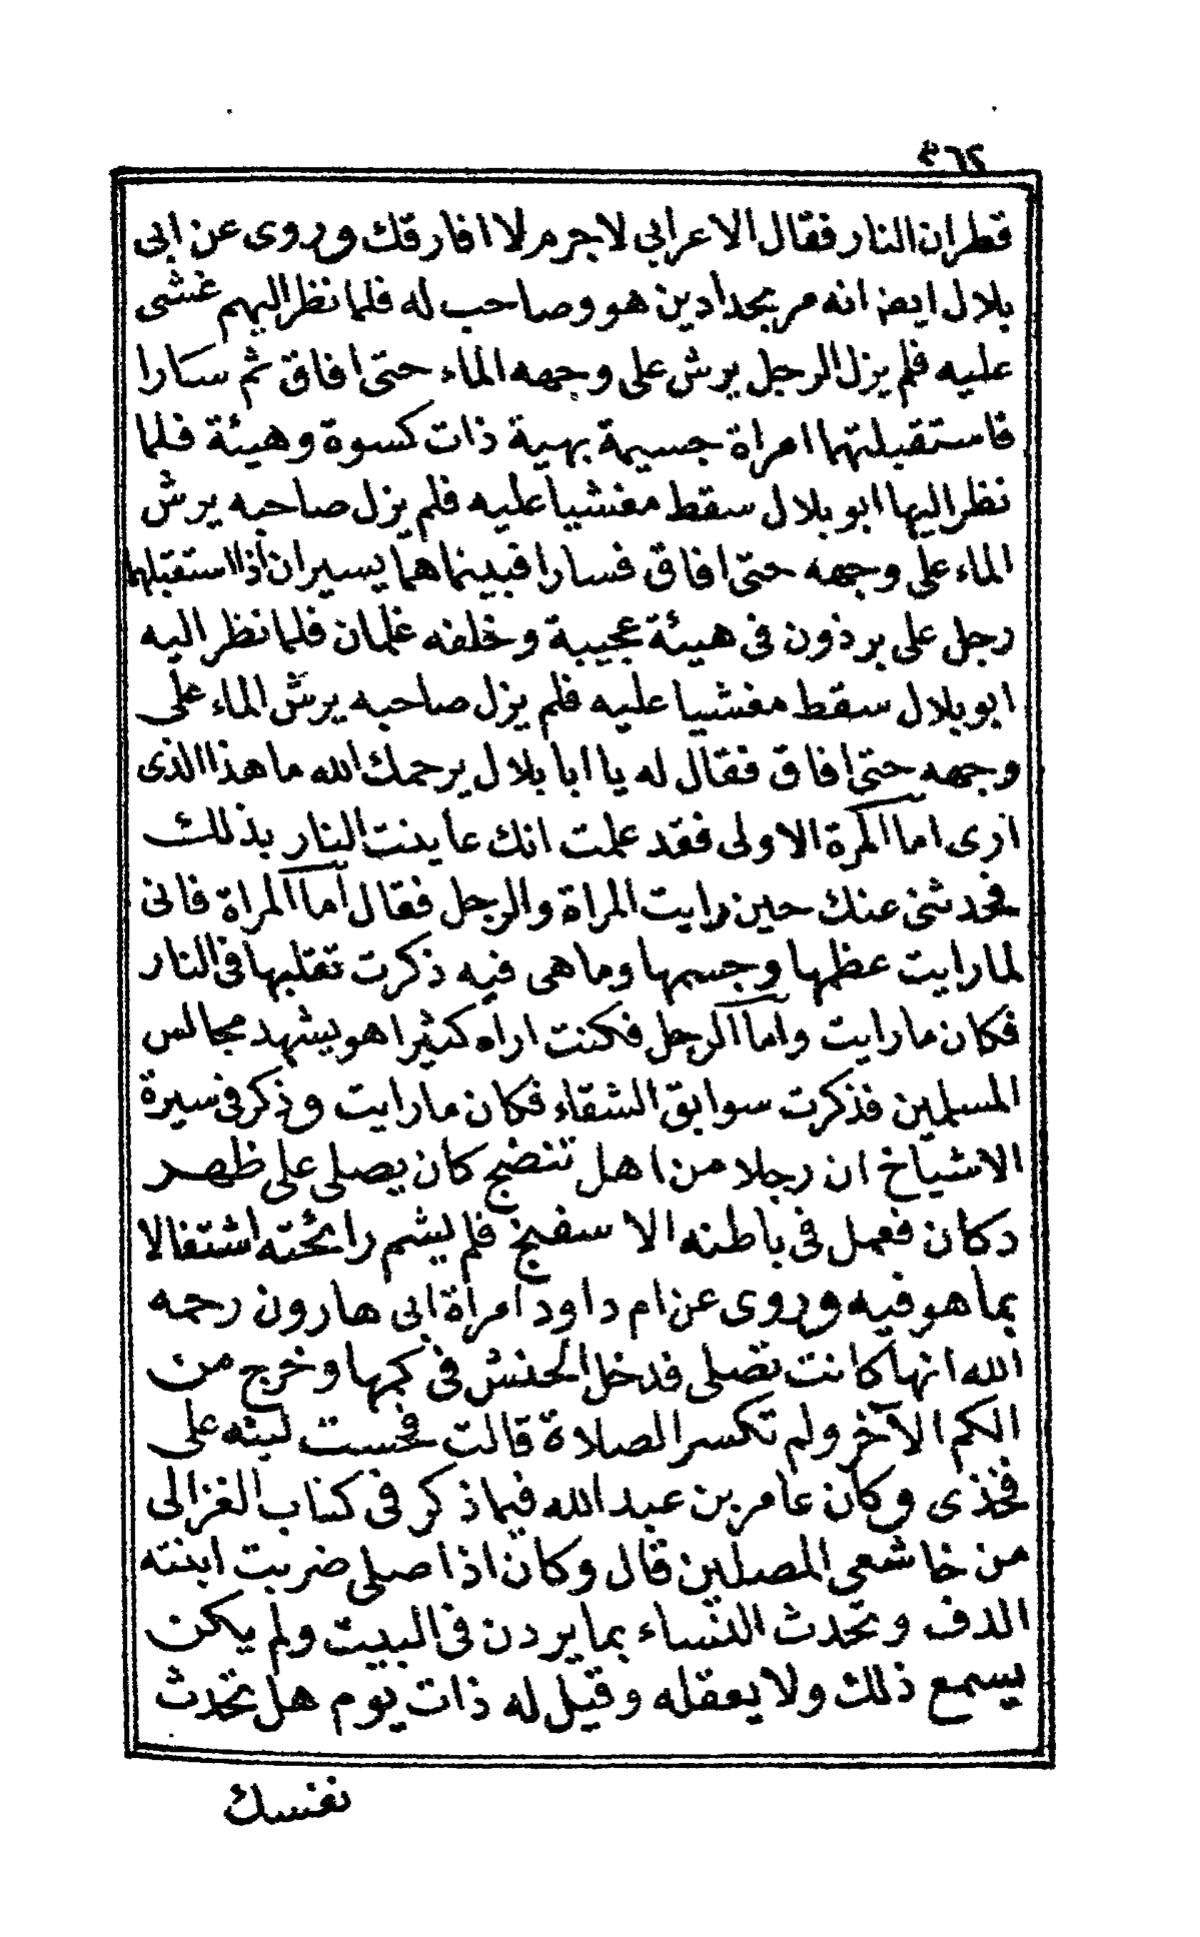 ٥٦٢
قطران النار فقال الاعرابي لا جرم لا افارقك وروى عن ابي
بلال ايضا انه مر بحدادين هو وصاحب له فلما نظر اليهم غشى
عليه فلم يزل الرجل يرش على وجهه الماء حتى افاق ثم سارا
فاستقبلتهما امراة جسيمة بهية ذات كسوة وهيئة فلما
نظر اليها ابو بلال سقط مغشيا عليه فلم يزل صاحبه يرش
الماء على وجهه حتى افاق فسارا فبينما هما يسيران اذا استقبلهما
رجل على برذون في هيئة عجيبة وخلفه غلمان فلما نظر اليه
ابو بلال سقط مغشيا عليه فلم يزل صاحبه يرش الماء على
وجهه حتى افاق فقال له يا ابا بلال يرحمك الله ما هذا الذى
ارى اما المرة الاولى فقد علمت انك عاينت النار بذلك
فحدثنى عنك حين رايت المراة والرجل فقال اما المراة فانى
لما رايت عظمها وجسمها وما هى فيه ذكرت تقلبها فى النار
فكان ما رايت واما الرجل فكنت اراه كثيرا هو يشهد مجالس
المسلمين فذكرت سوابق الشقاء فكان ما رايت وذكر فى سيرة
الاشياخ ان رجلا من اهل تنضج كان يصلى على ظهر
دكان فعمل فى باطنه الا سفنج فلم يشم رائحته اشتغالا
بما هو فيه وروى عن ام داود امراة ابى هارون رحمه
الله انها كانت تصلى فدخل الحنش فى كمها وخرج من
الكم الآخر ولم تكسر الصلاة قالت فحست لينه على
فخذى وكان عامر بن عبد الله فيما ذكر فى كتاب الغزالى
من خاشعى المصلين قال وكان اذا صلى ضربت ابنته
الدف وتحدث النساء بما يردن فى البيت ولم يكن
يسمع ذلك ولا يعقله وقيل له ذات يوم هل تحدث
نفسك